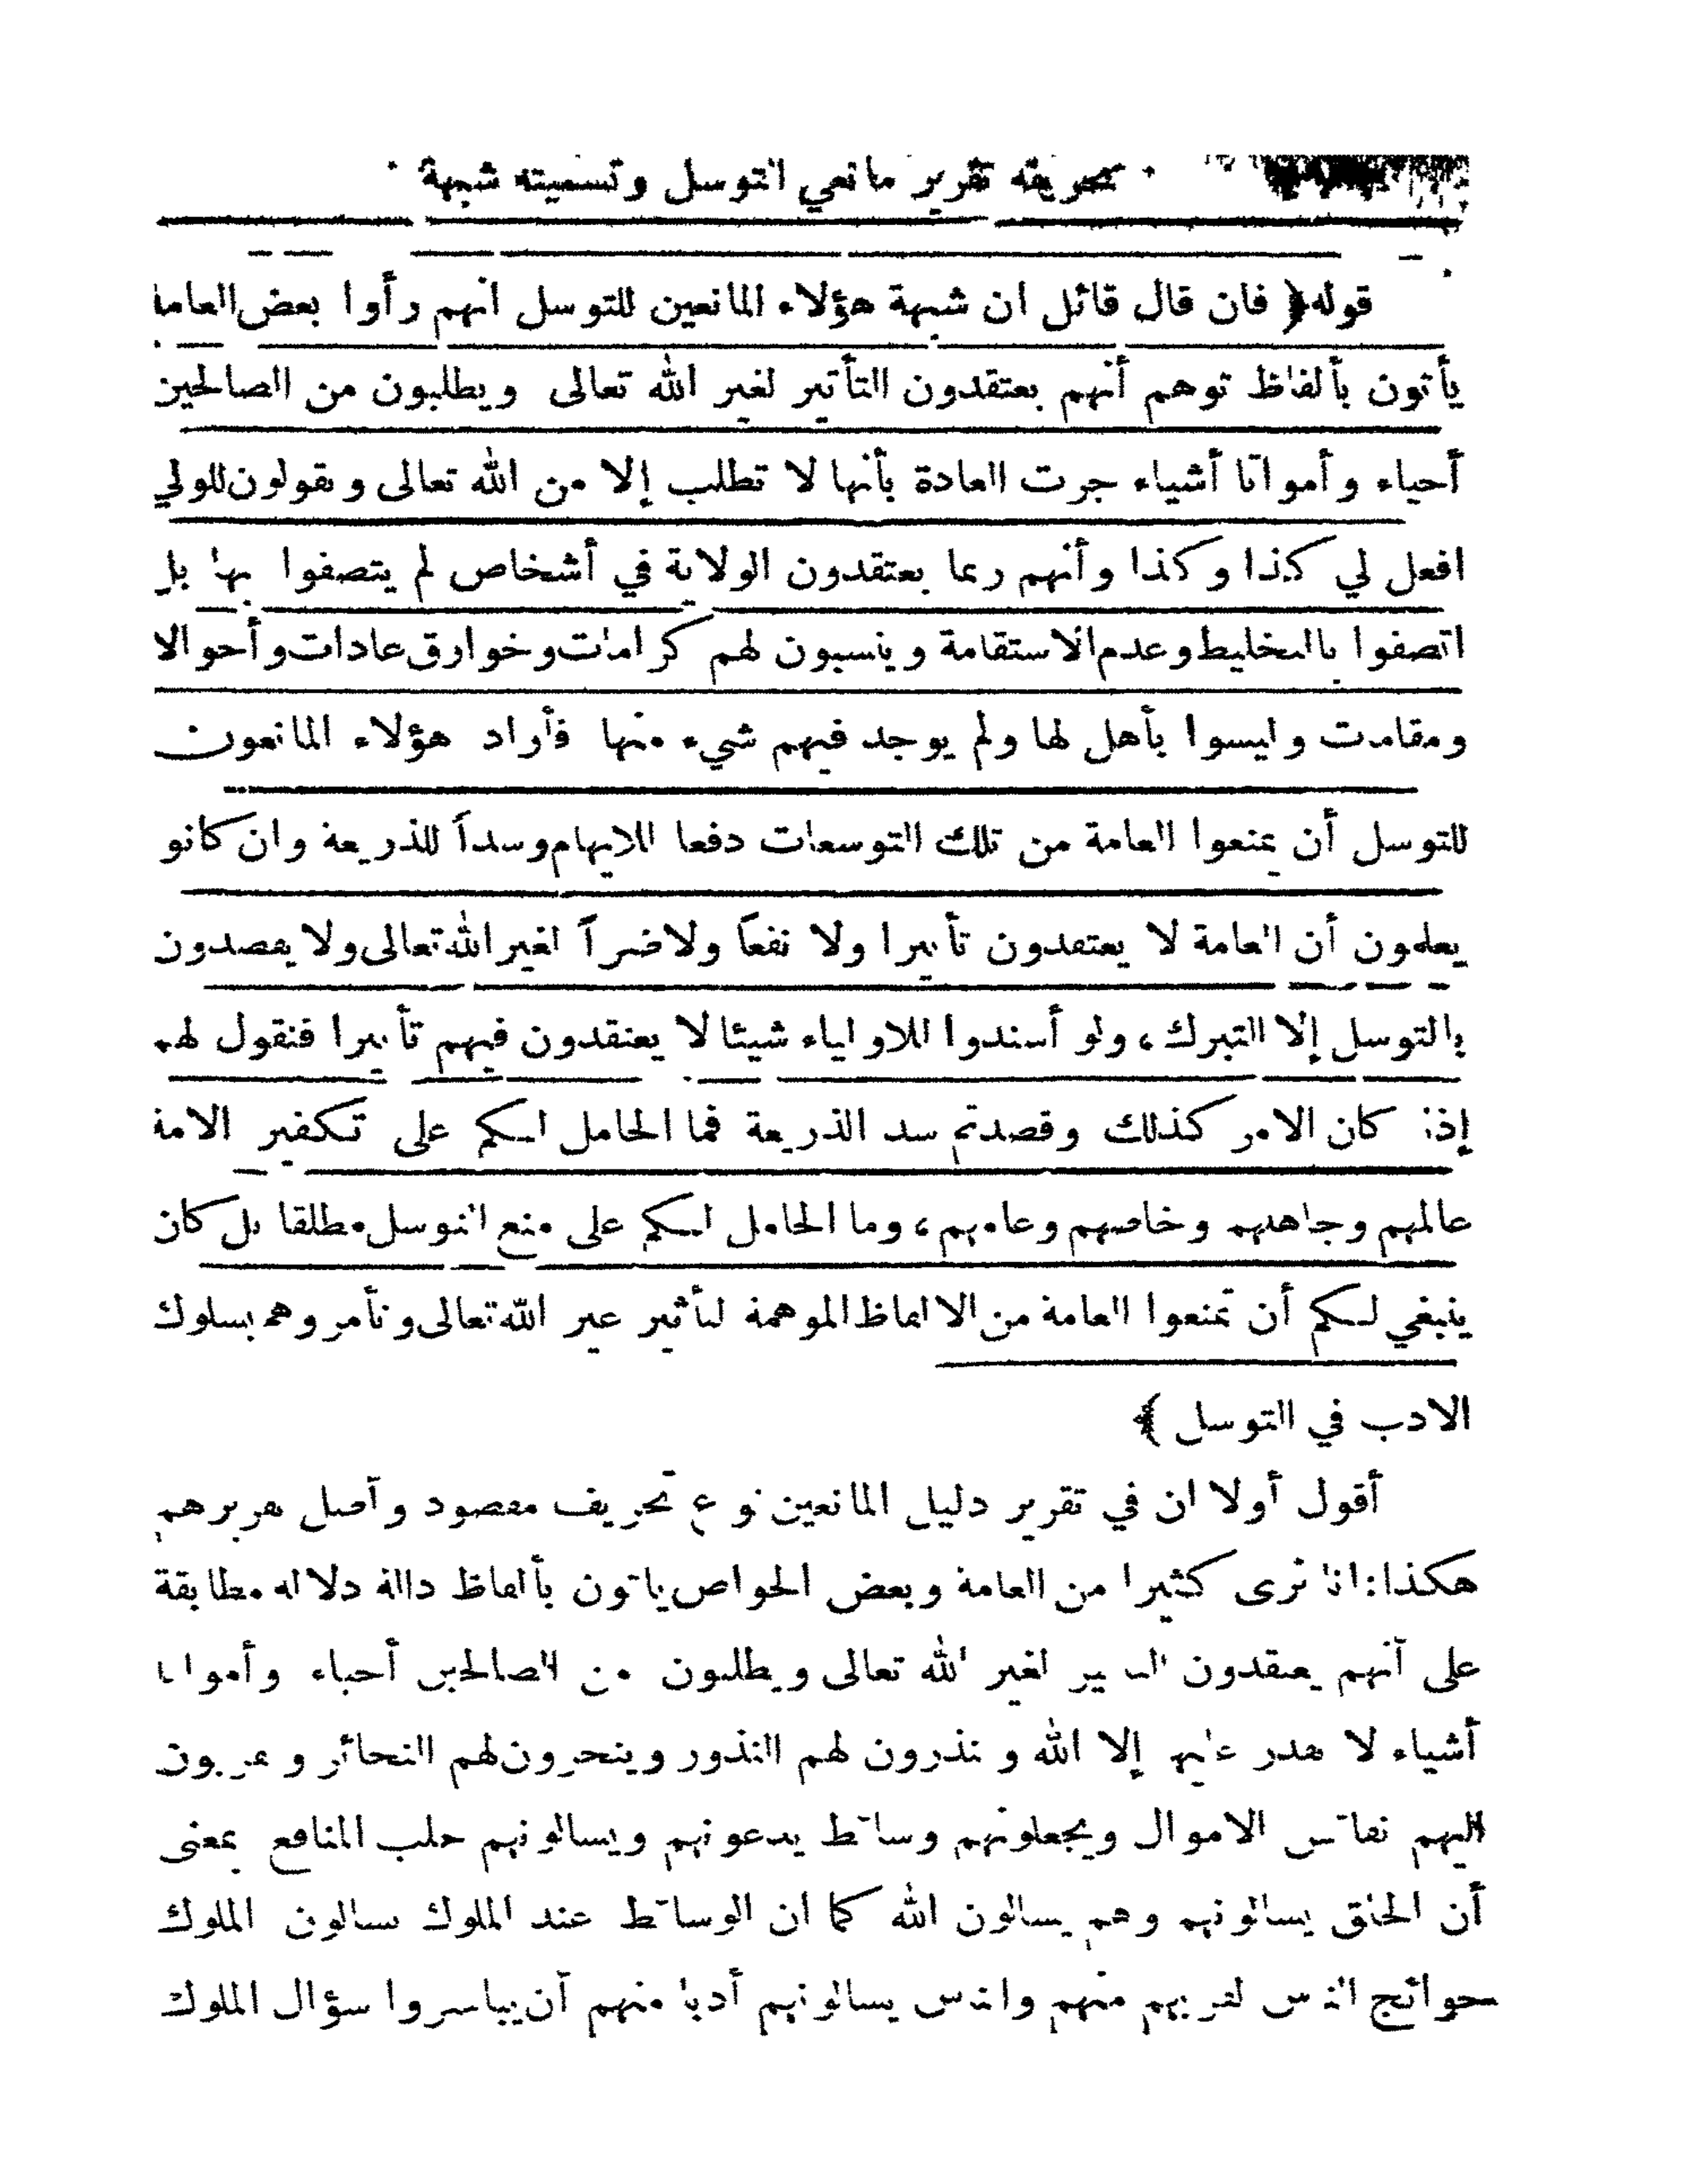 تحريفه تقرير مانعي التوسل وتسميته شبهة
قوله﴿ فان قال قائل ان شبهة هؤلاء المانعين للتوسل انهم رأوا بعض العامة
يأتون بألفاظ توهم أنهم يعتقدون التأثير لغير الله تعالى ويطلبون من الصالحين
أحياء وأمواتا أشياء جرت العادة بأنها لا تطلب إلا من الله تعالى ويقولون للولي
افعل لي كذا وكذا وأنهم ربما يعتقدون الولاية في أشخاص لم يتصفوا بها بل
اتصفوا بالتخليط وعدم الاستقامة وينسبون لهم كرامات وخوارق عادات وأحوالا
ومقامات وليسوا بأهل لها ولم يوجد فيهم شيء منها فأراد هؤلاء المانعون
للتوسل أن يمنعوا العامة من تلك التوسعات دفعا للايهام وسداً للذريعة وان كانو
يعلمون أن العامة لا يعتقدون تأثيرا ولا نفعاً ولا ضراً لغير الله تعالى ولا يقصدون
بالتوسل إلا التبرك، ولو أسندوا للاولياء شيئا لا يعتقدون فيهم تأثيرا فنقول لهم
إذا كان الامر كذلك وقصدتم سد الذريعة فما الحامل لكم على تكفير الامة
عالمهم وجاهلهم وخاصهم وعامهم، وما الحامل لكم على منع التوسل مطلقا بل كان
ينبغي لكم أن تمنعوا العامة من الالفاظ الموهمة لتأثير غير الله تعالى وتأمروهم بسلوك
الادب في التوسل ﴾
أقول أولا ان في تقرير دليل المانعين نوع تحريف مقصود وأصل تقريرهم
هكذا: انا نرى كثيرا من العامة وبعض الخواص يأتون بألفاظ دالة دلالة مطابقة
على أنهم يعتقدون التأثير لغير الله تعالى ويطلبون من الصالحين أحياء وأمواتا
أشياء لا يقدر عليها إلا الله وينذرون لهم النذور وينحرون لهم النحائر ويقربون
اليهم نفائس الاموال ويجعلونهم وسائط يدعونهم ويسألونهم جلب المنافع بمعنى
أن الخلق يسألونهم وهم يسألون الله كما ان الوسائط عند الملوك يسألون الملوك
حوائج الناس لقربهم منهم والناس يسألونهم أدبا منهم أن يباشروا سؤال الملوك